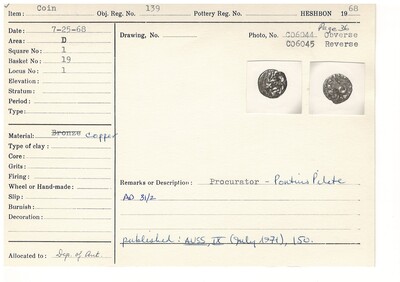 Item: Coin Obj. Reg. No. 139 Pottery Reg. No. HESHBON 19 68
Date: 7-25-68
Area: D
Square No: 1
Basket No: 19
Locus No: 1
Elevation:
Stratum:
Period:
Type:
Drawing, No.
Page 36
Photo, No. C06044 Obverse
C06045 Reverse
Material: Bronze Copper
Type of clay:
Core:
Grits:
Firing:
Wheel or Hand-made:
Slip:
Burnish:
Decoration:
Remarks or Description: Procurator - Pontius Pilate
AD 31/2
published: AUSS, IX (July 1971), 150.
Allocated to: Dep. of Ant.